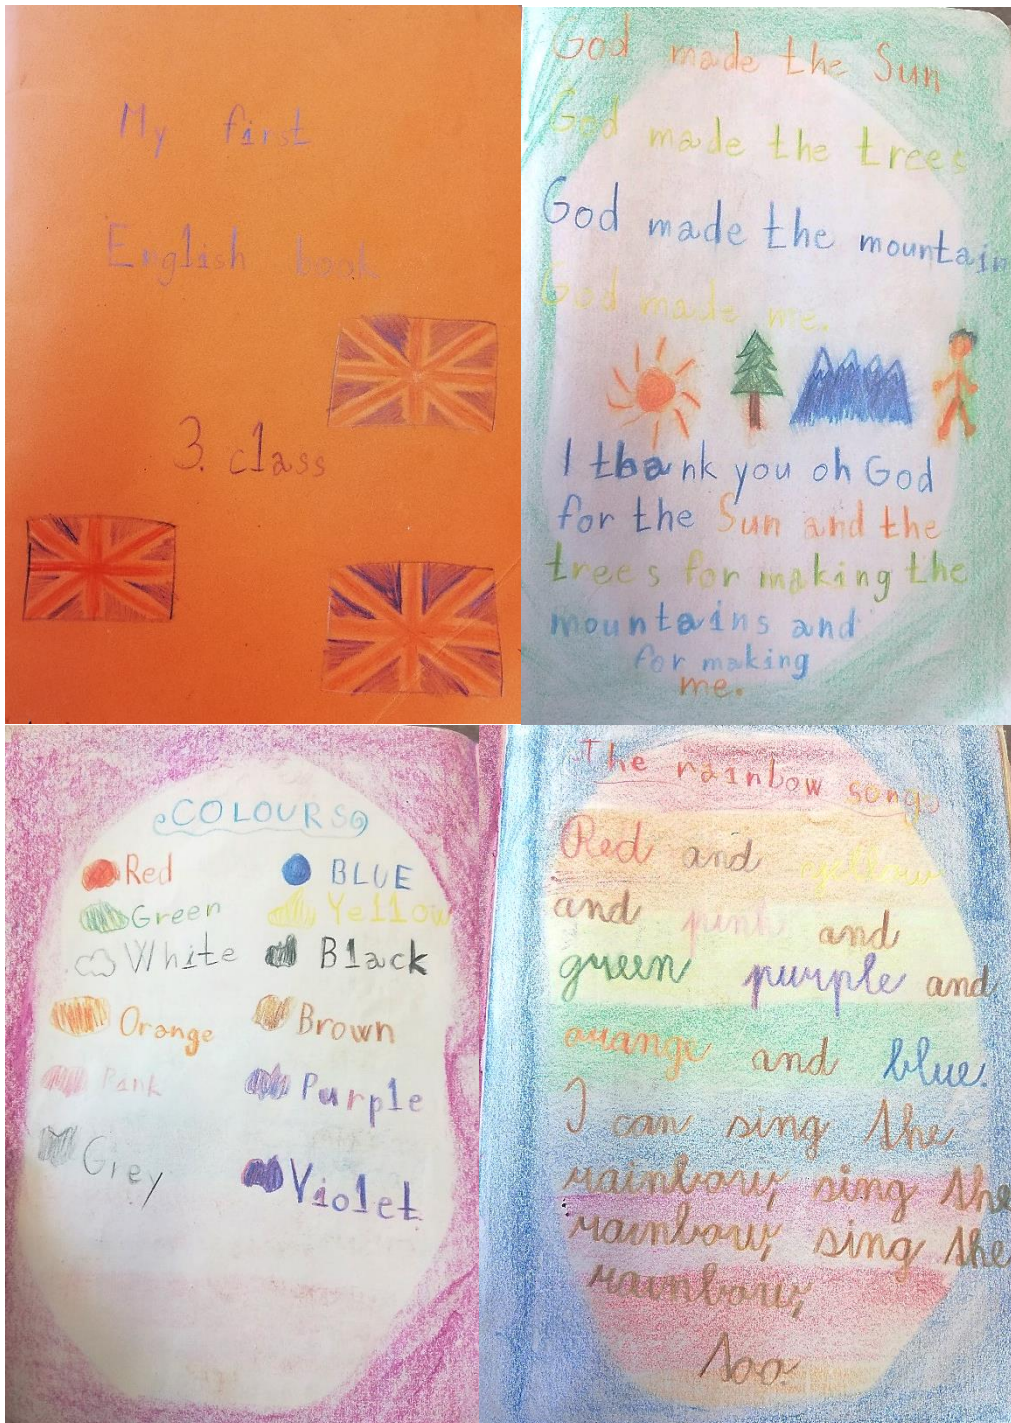 My first
English book
3. class
God made the Sun
God made the trees
God made the mountain
God made me.
I thank you oh God
for the Sun and the
trees for making the
mountains and
for making
me.
COLOURS
Red BLUE
Green Yellow
White Black
Orange Brown
Pink Purple
Grey Violet
The rainbow song
Red and yellow
and pink and
green purple and
orange and blue.
I can sing the
rainbow, sing the
rainbow, sing the
rainbow,
too.